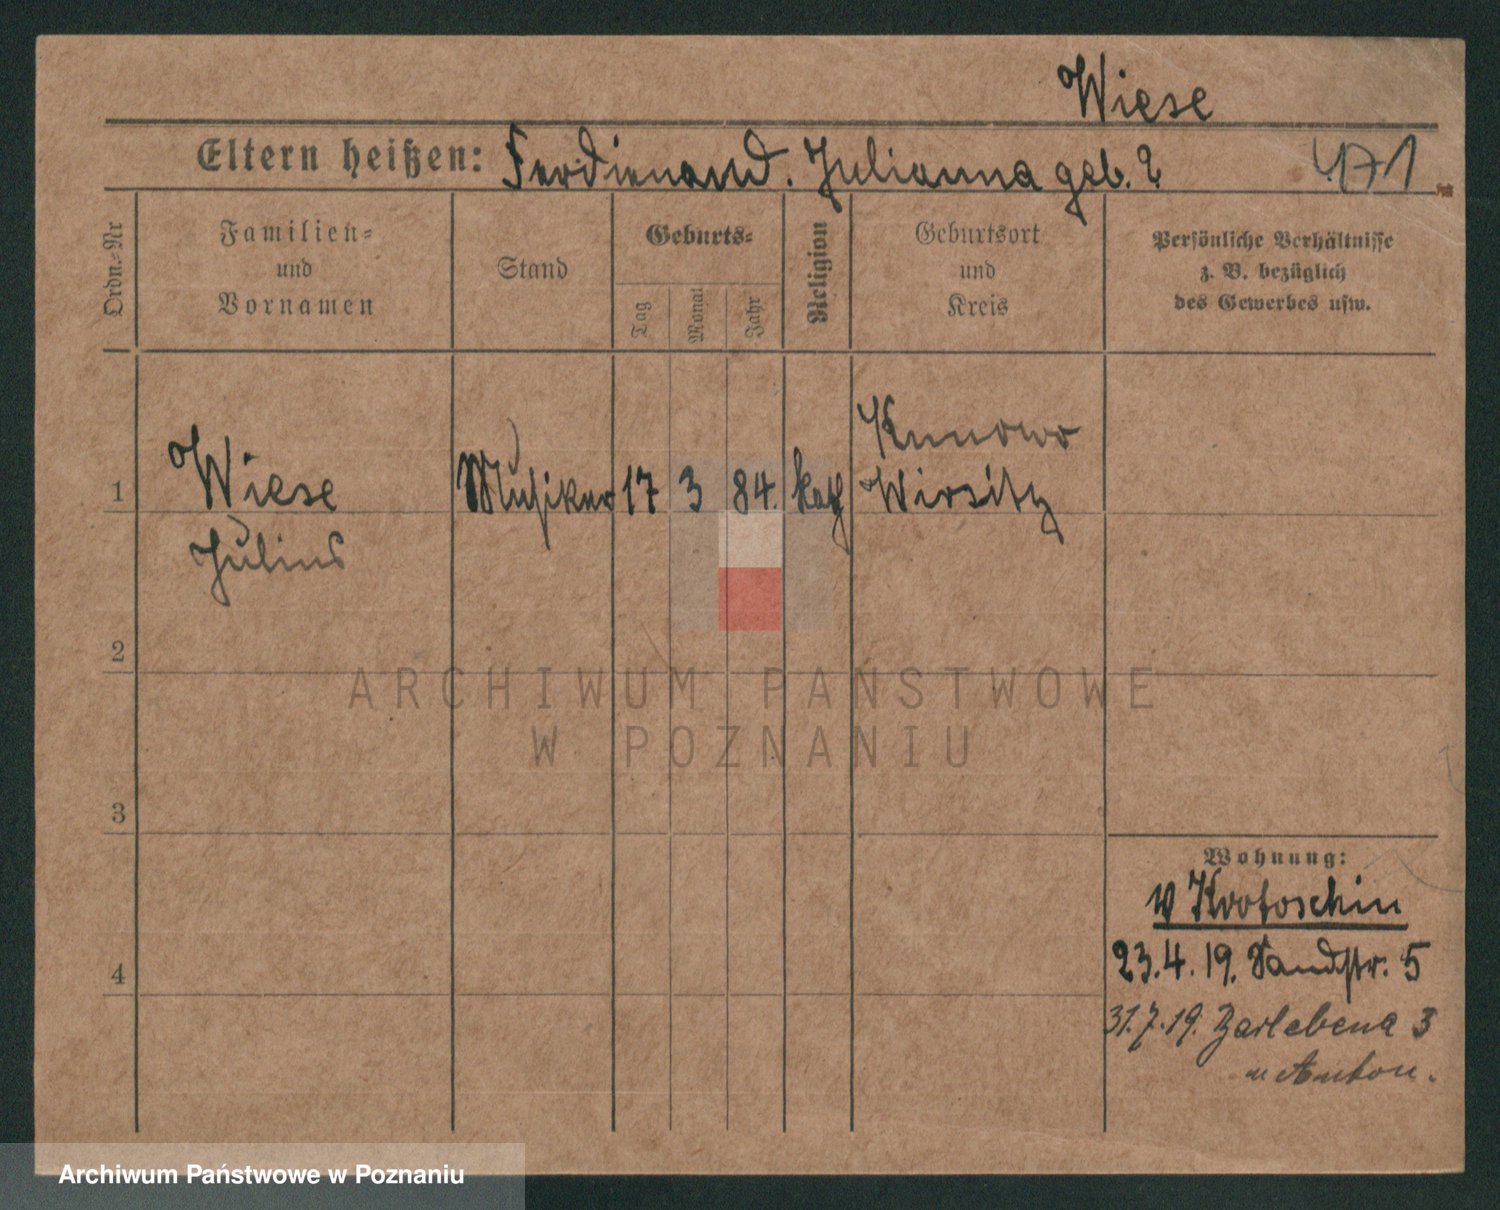 Wiese
Eltern heißen: Ferdienand. Julianna geb. ? 471
Ordn.-Nr
Familien-
und
Vornamen
Stand
Geburts-
Tag
Monat
Jahr
Religion
Geburtsort
und
Kreis
Persönliche Verhältnisse
z. B. bezüglich
des Gewerbes usw.
Kunowo
1 Wiese Musiker 17 3 84. kath Wirsitz
Julius
2
ARCHIWUM PAŃSTWOWE
W POZNANIU
3
Wohnung:
v Krotoschin
23.4.19. Sandstr. 5
4
31.7.19. 3
Anton.
Archiwum Państwowe w Poznaniu